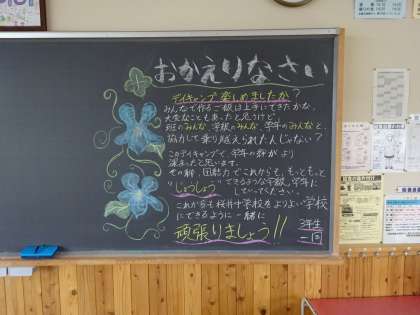 おかえりなさい
デイキャンプ楽しめましたか?
みんなで作るご飯は上手にできたかな。
大変なこともあったと思うけど、
班のみんな、学級のみんな、学年のみんなと、
協力して乗り越えられたんじゃない?
このデイキャンプで、学年の絆がより
深まったと思います。
その絆、団結力でこれからも、もっともっと
"じょうしょう"できるような学級、学年に
していってください。
これからも桜井中学校をよりよい学校
にできるように一緒に
頑張りましょう!!
3年生
一同